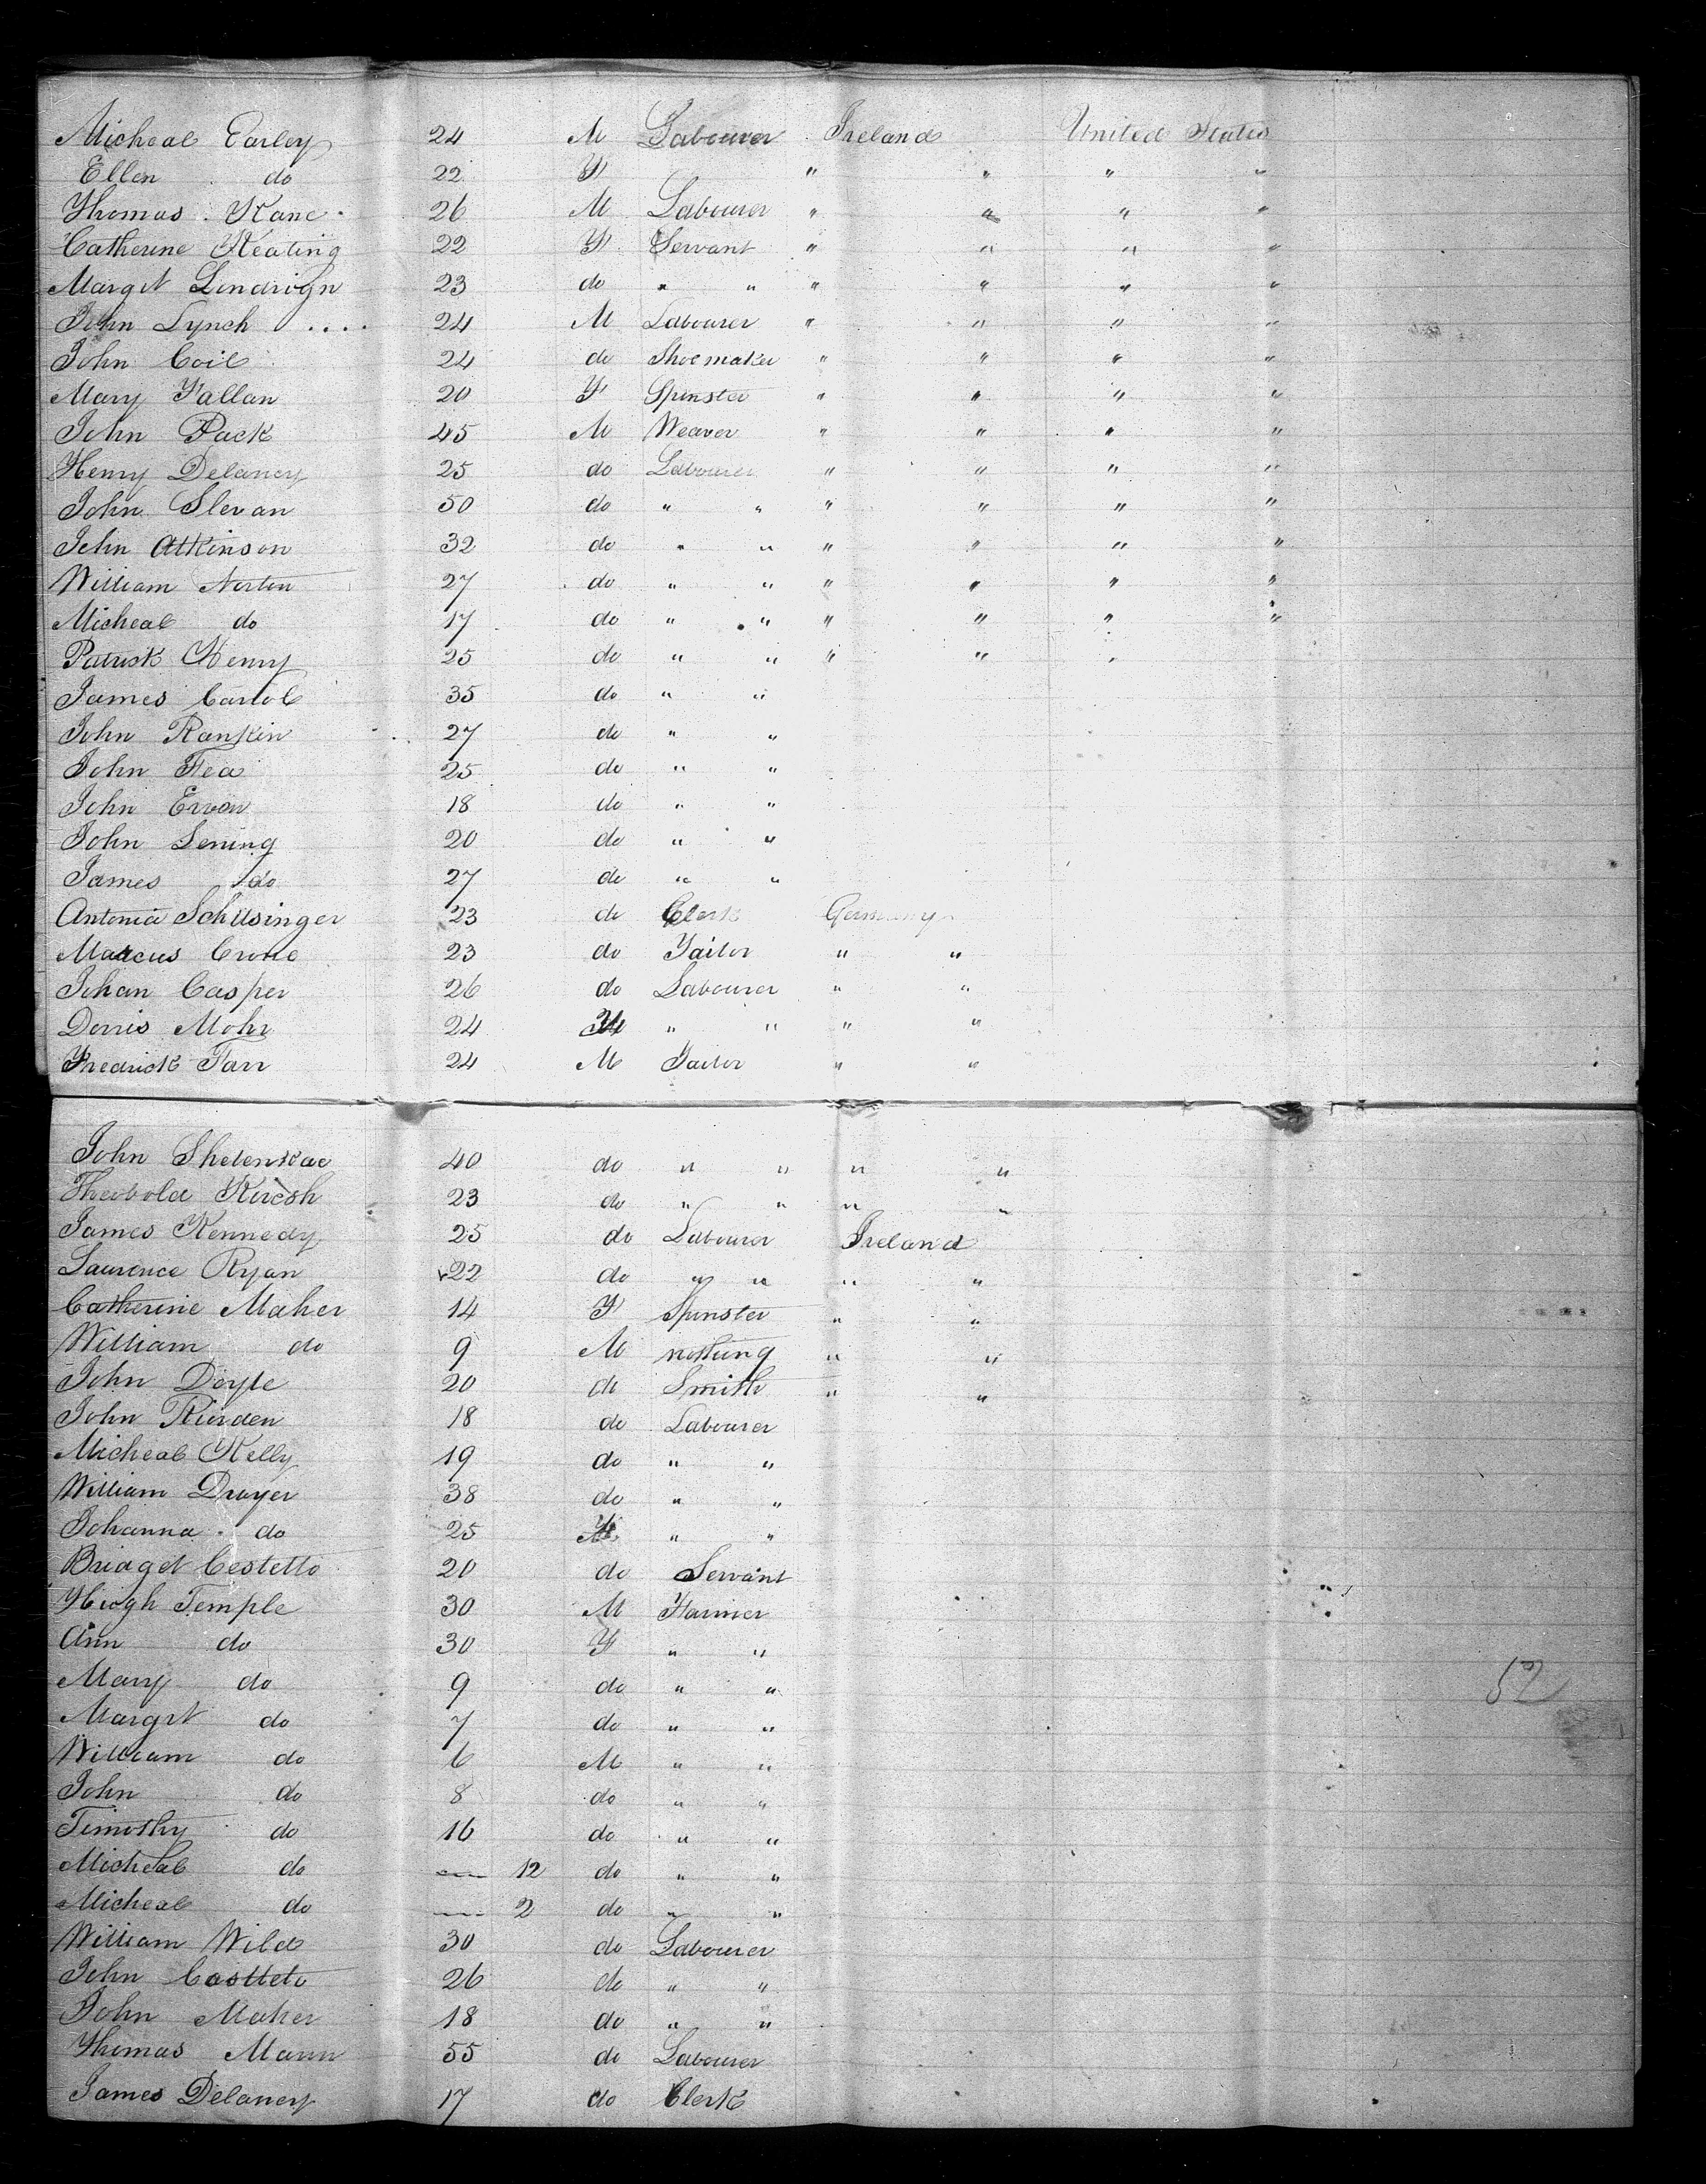 Micheal Earley 24 M Labourer Ireland United States
Ellen do 22 F " " " "
Thomas Kane 26 M Labourer " " " "
Catherine Keating 22 F Servant " " " "
Margit Lendrign 23 do " " " " " "
John Lynch .... 24 M Labourer " " " "
John Coil 24 do Shoemaker " " " "
Mary Fallan 20 F Spinster " " " "
John Pack 45 M Weaver " " " "
Henry Delaney 25 do Labourer " " " "
John Slevan 50 do " " " " " "
John Atkinson 32 do " " " " " "
William Norton 27 do " " " " " "
Micheal do 17 do " " " " " "
Patrick Henry 25 do " " " " "
James Carlol 35 do " "
John Rankin 27 do " "
John Fea 25 do " "
John Ervan 18 do " "
John Sening 20 do " "
James do 27 do " "
Antonia Schusinger 23 do Clerk Germany
Marcus Crone 23 do Tailor " "
Johan Casper 26 do Labourer " "
Dorris Mohr 24 " " " "
Fredrick Farr 24 M Tailor " "
John 40 do " " " "
Theobold Kiresh 23 do " " " "
James Kennedy 25 do Labourer Ireland
Laurence Ryan 22 do " " " "
Catherine Maher 14 F Spinster " "
William do 9 M nothing " "
John Doyle 20 do Smith " "
John Riorden 18 do Labourer
Micheal Kelly 19 do " "
William Drayer 38 do " "
Johanna do 25 F " "
Bridget Costetto 20 do Servant
Hiogh Temple 30 M Farmer
Ann do 30 F " "
Mary do 9 do " "
Margrt do 7 do " "
William do 6 M " "
John do 8 do " "
Timothy do 16 do " "
Micheal do 12 do " "
Micheal do 2 do " "
William Wild 30 do Labourer
John Castteto 26 do " "
John Maher 18 do " "
Thomas Mann 55 do Labourer
James Delaney 17 do Clerk
52